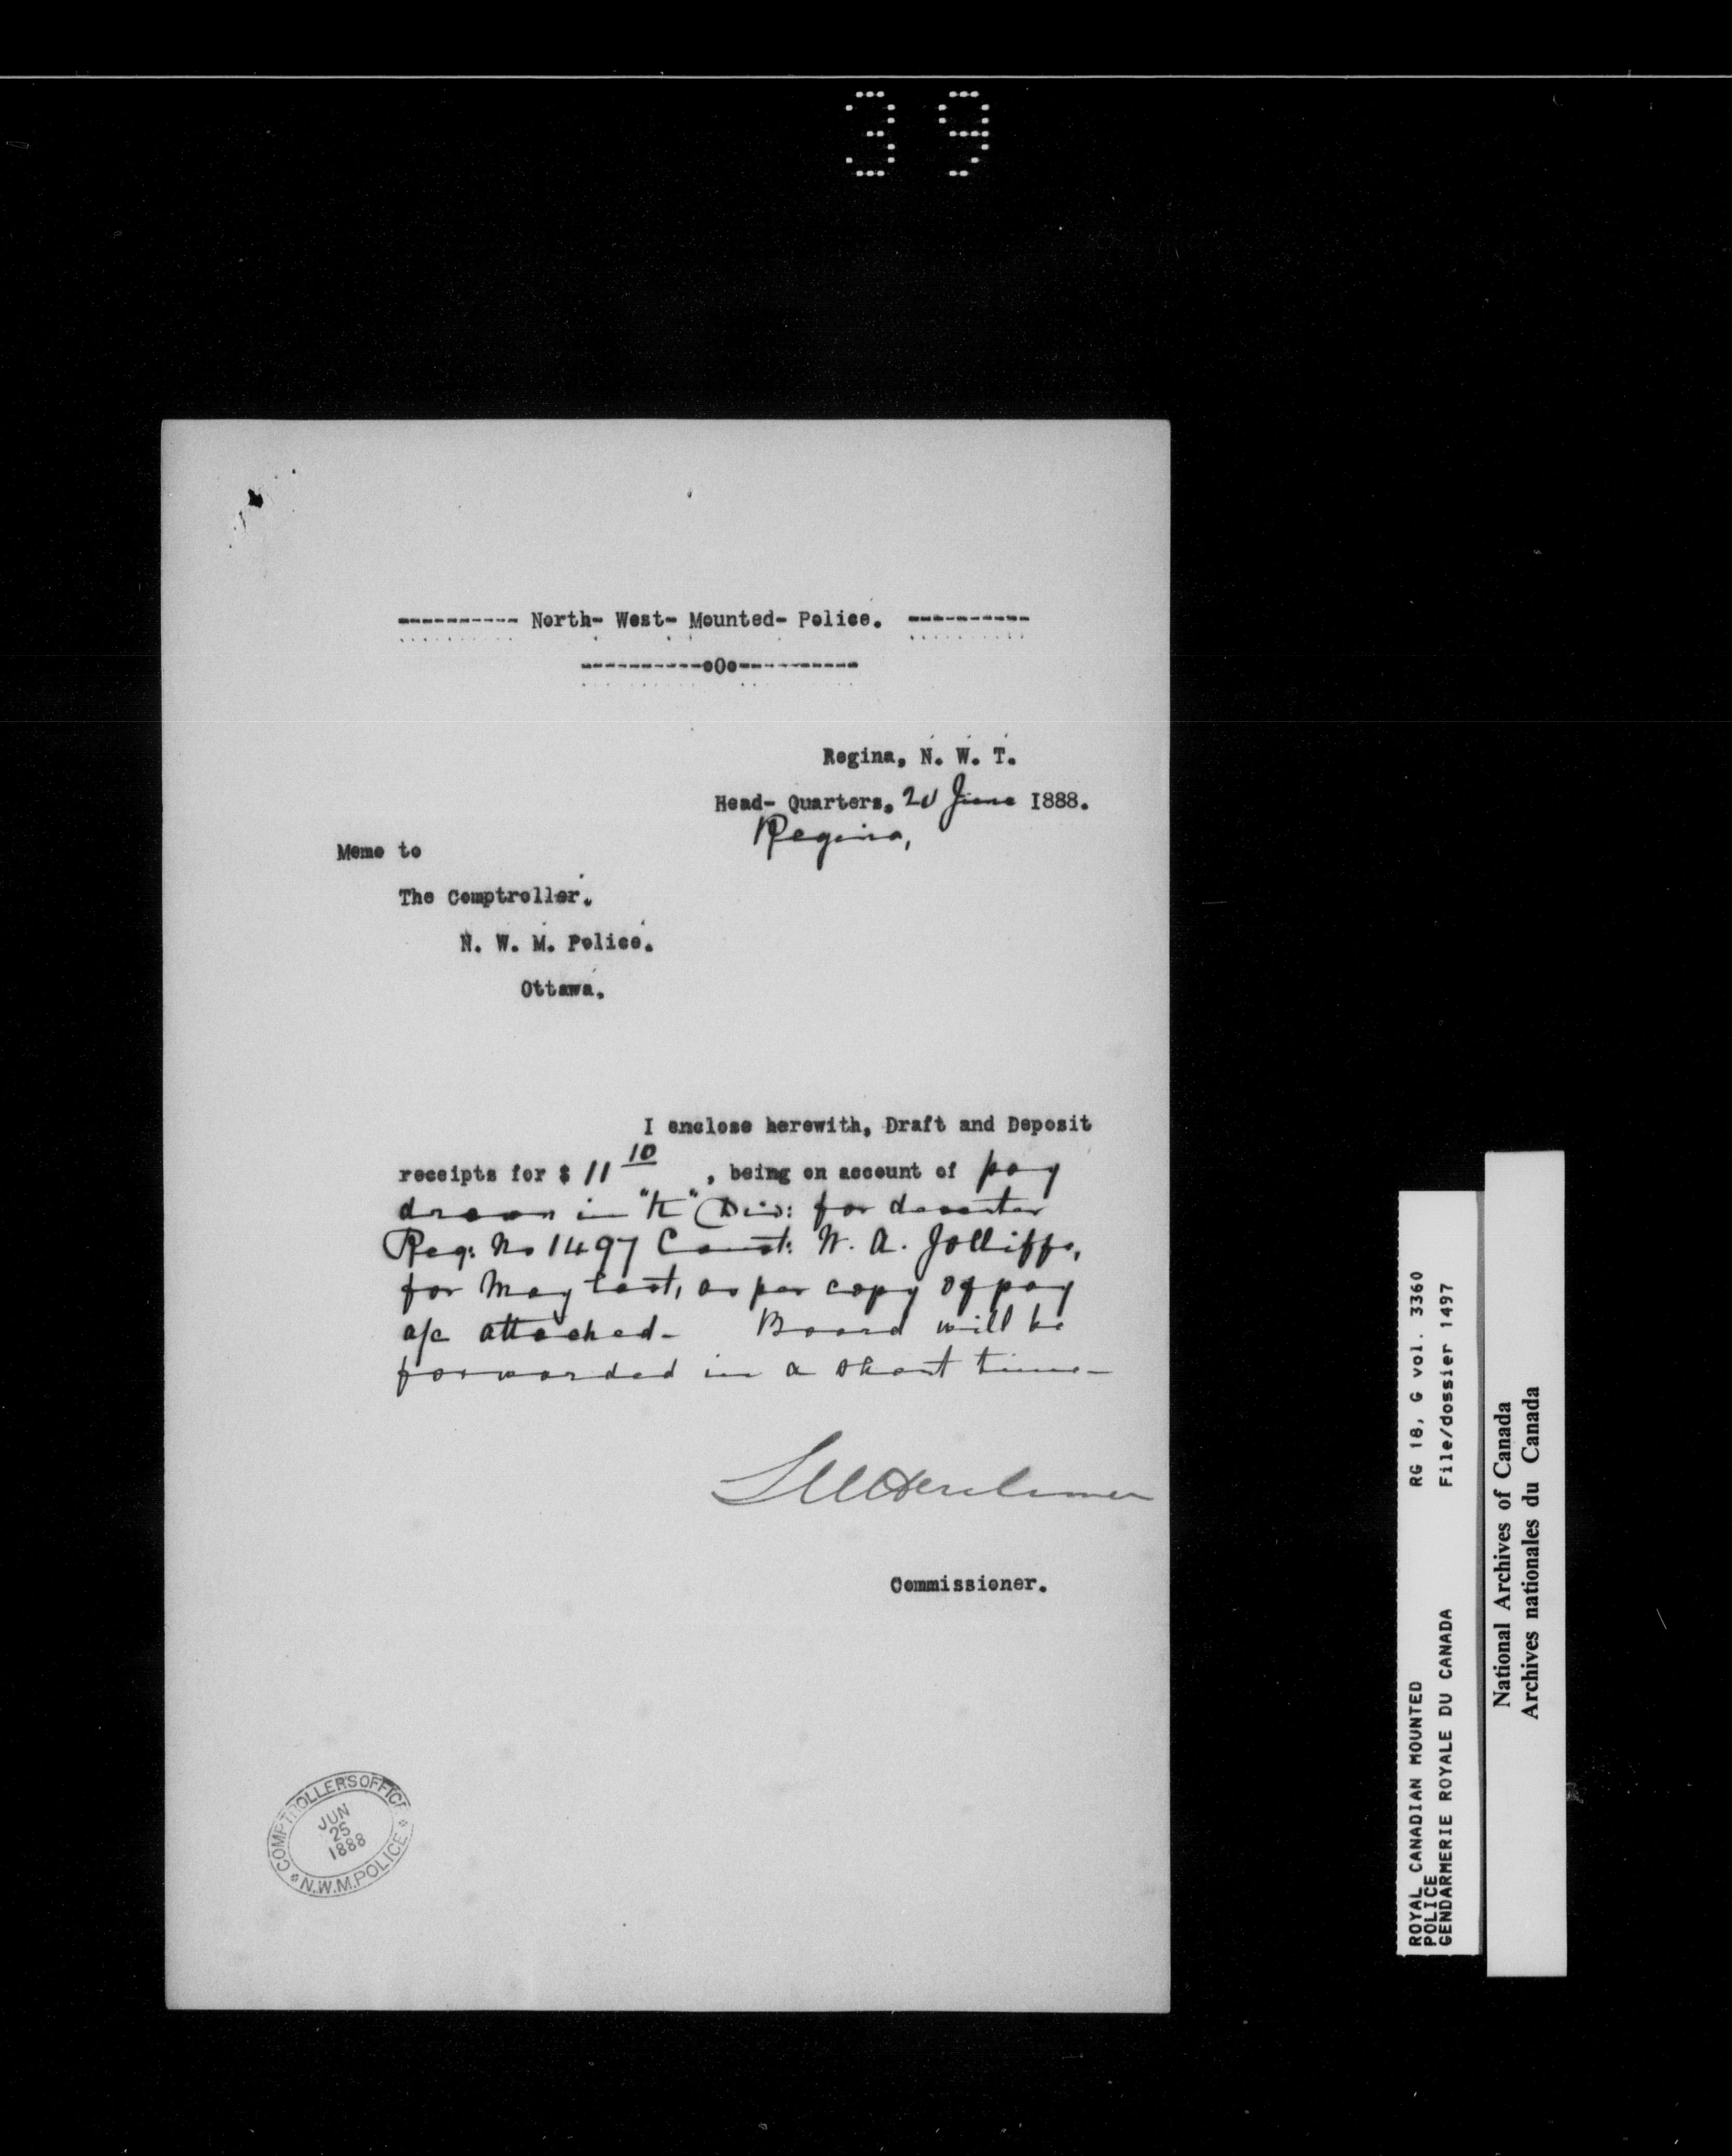 39
---------- North- West- Mounted- Police. ----------
----------o0o----------
Regina, N. W. T.
Head- Quarters, 20 June 1888.
Regina,
Memo to
The Comptroller.
N. W. M. Police.
Ottawa.
I enclose herewith, Draft and Deposit
receipts for $ 11 10 , being on account of pay
drawn in "K" Div: for deserter
Reg: No 1497 Const: W. A. Jolliffe,
for May last, as per copy of pay
a/c attached- Board will be
forwarded in a short time-
LWHerchmer
Commissioner.
COMPTROLLER'S OFFICE
JUN
25
1888
N.W.M. POLICE
ROYAL CANADIAN MOUNTED RG 18, G vol. 3360
POLICE
GENDARMERIE ROYALE DU CANADA File/dossier 1497
National Archives of Canada
Archives nationales du Canada